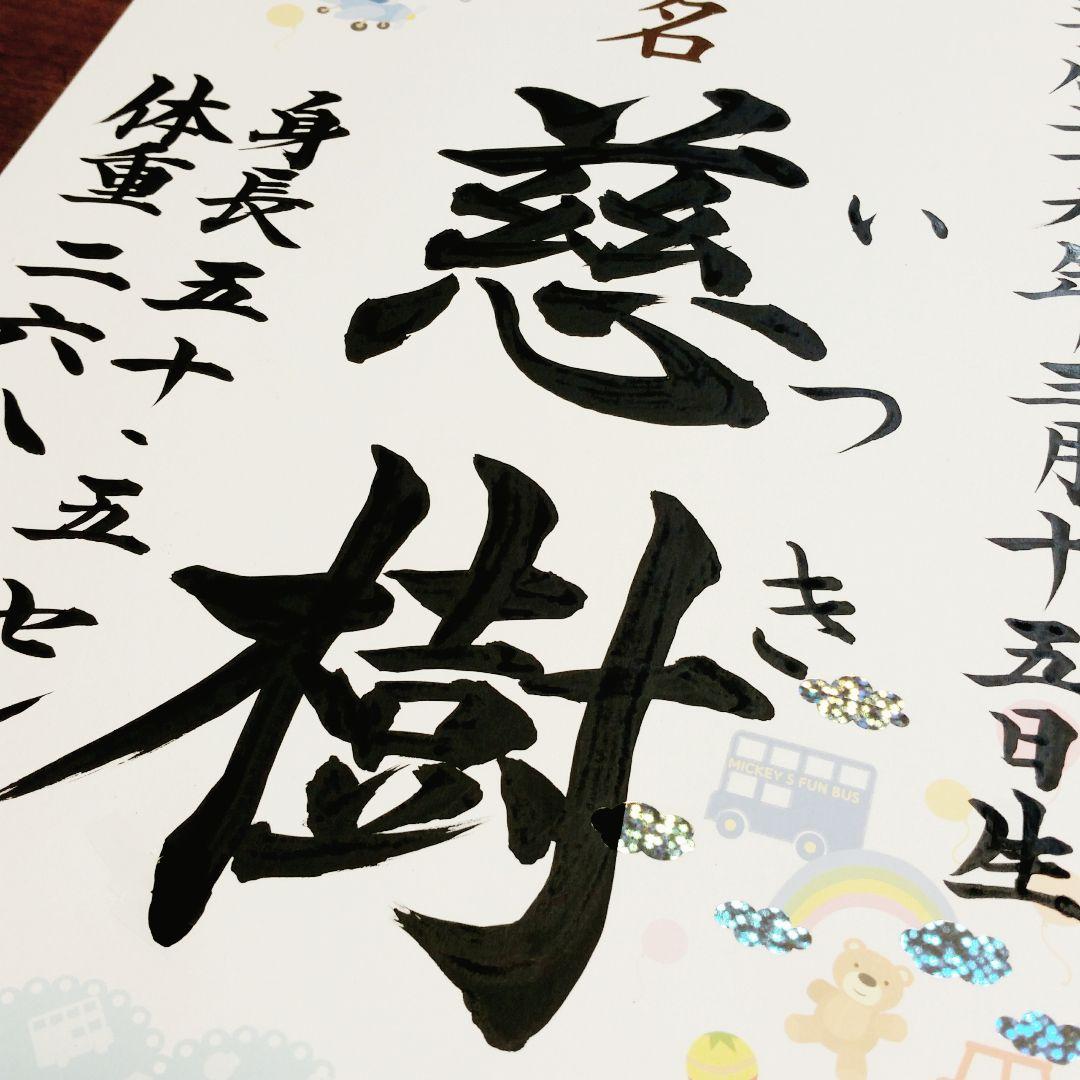 年三月十五日生
名
いつき
慈樹
身長五十、五セン
体重二六
MICKEY'S FUN BUS